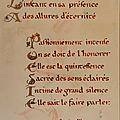 L'instant en sa présence
A des allures d'éternité
Passionnément intense
On se doit de l'honorer
Elle est la quintessence
Sacrée des sens éclairés
Intime de grand silence
Elle sait le faire parler.